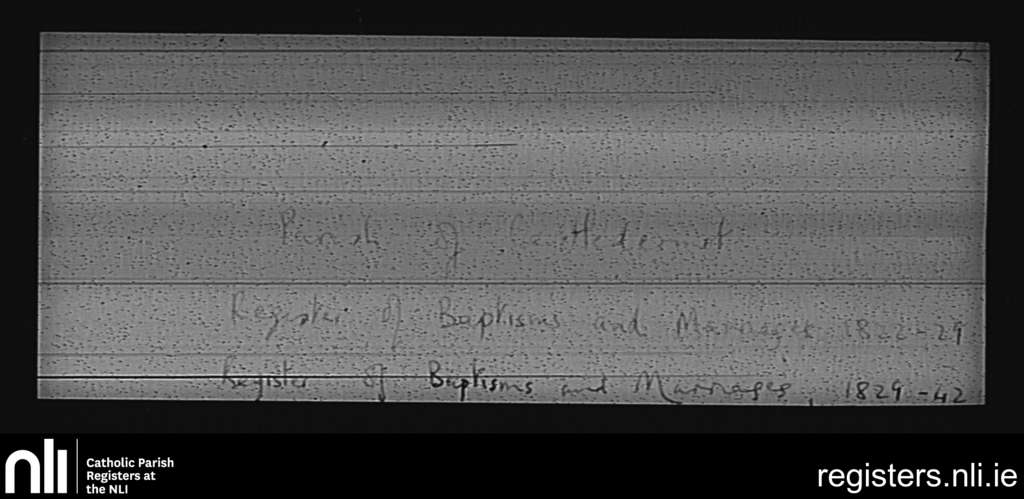 2
Parish of Castledermot
Register of Baptisms and Marriages 1822-29
Register of Baptisms and Marriages, 1829-42
nli
Catholic Parish
Registers at
the NLI
registers.nli.ie